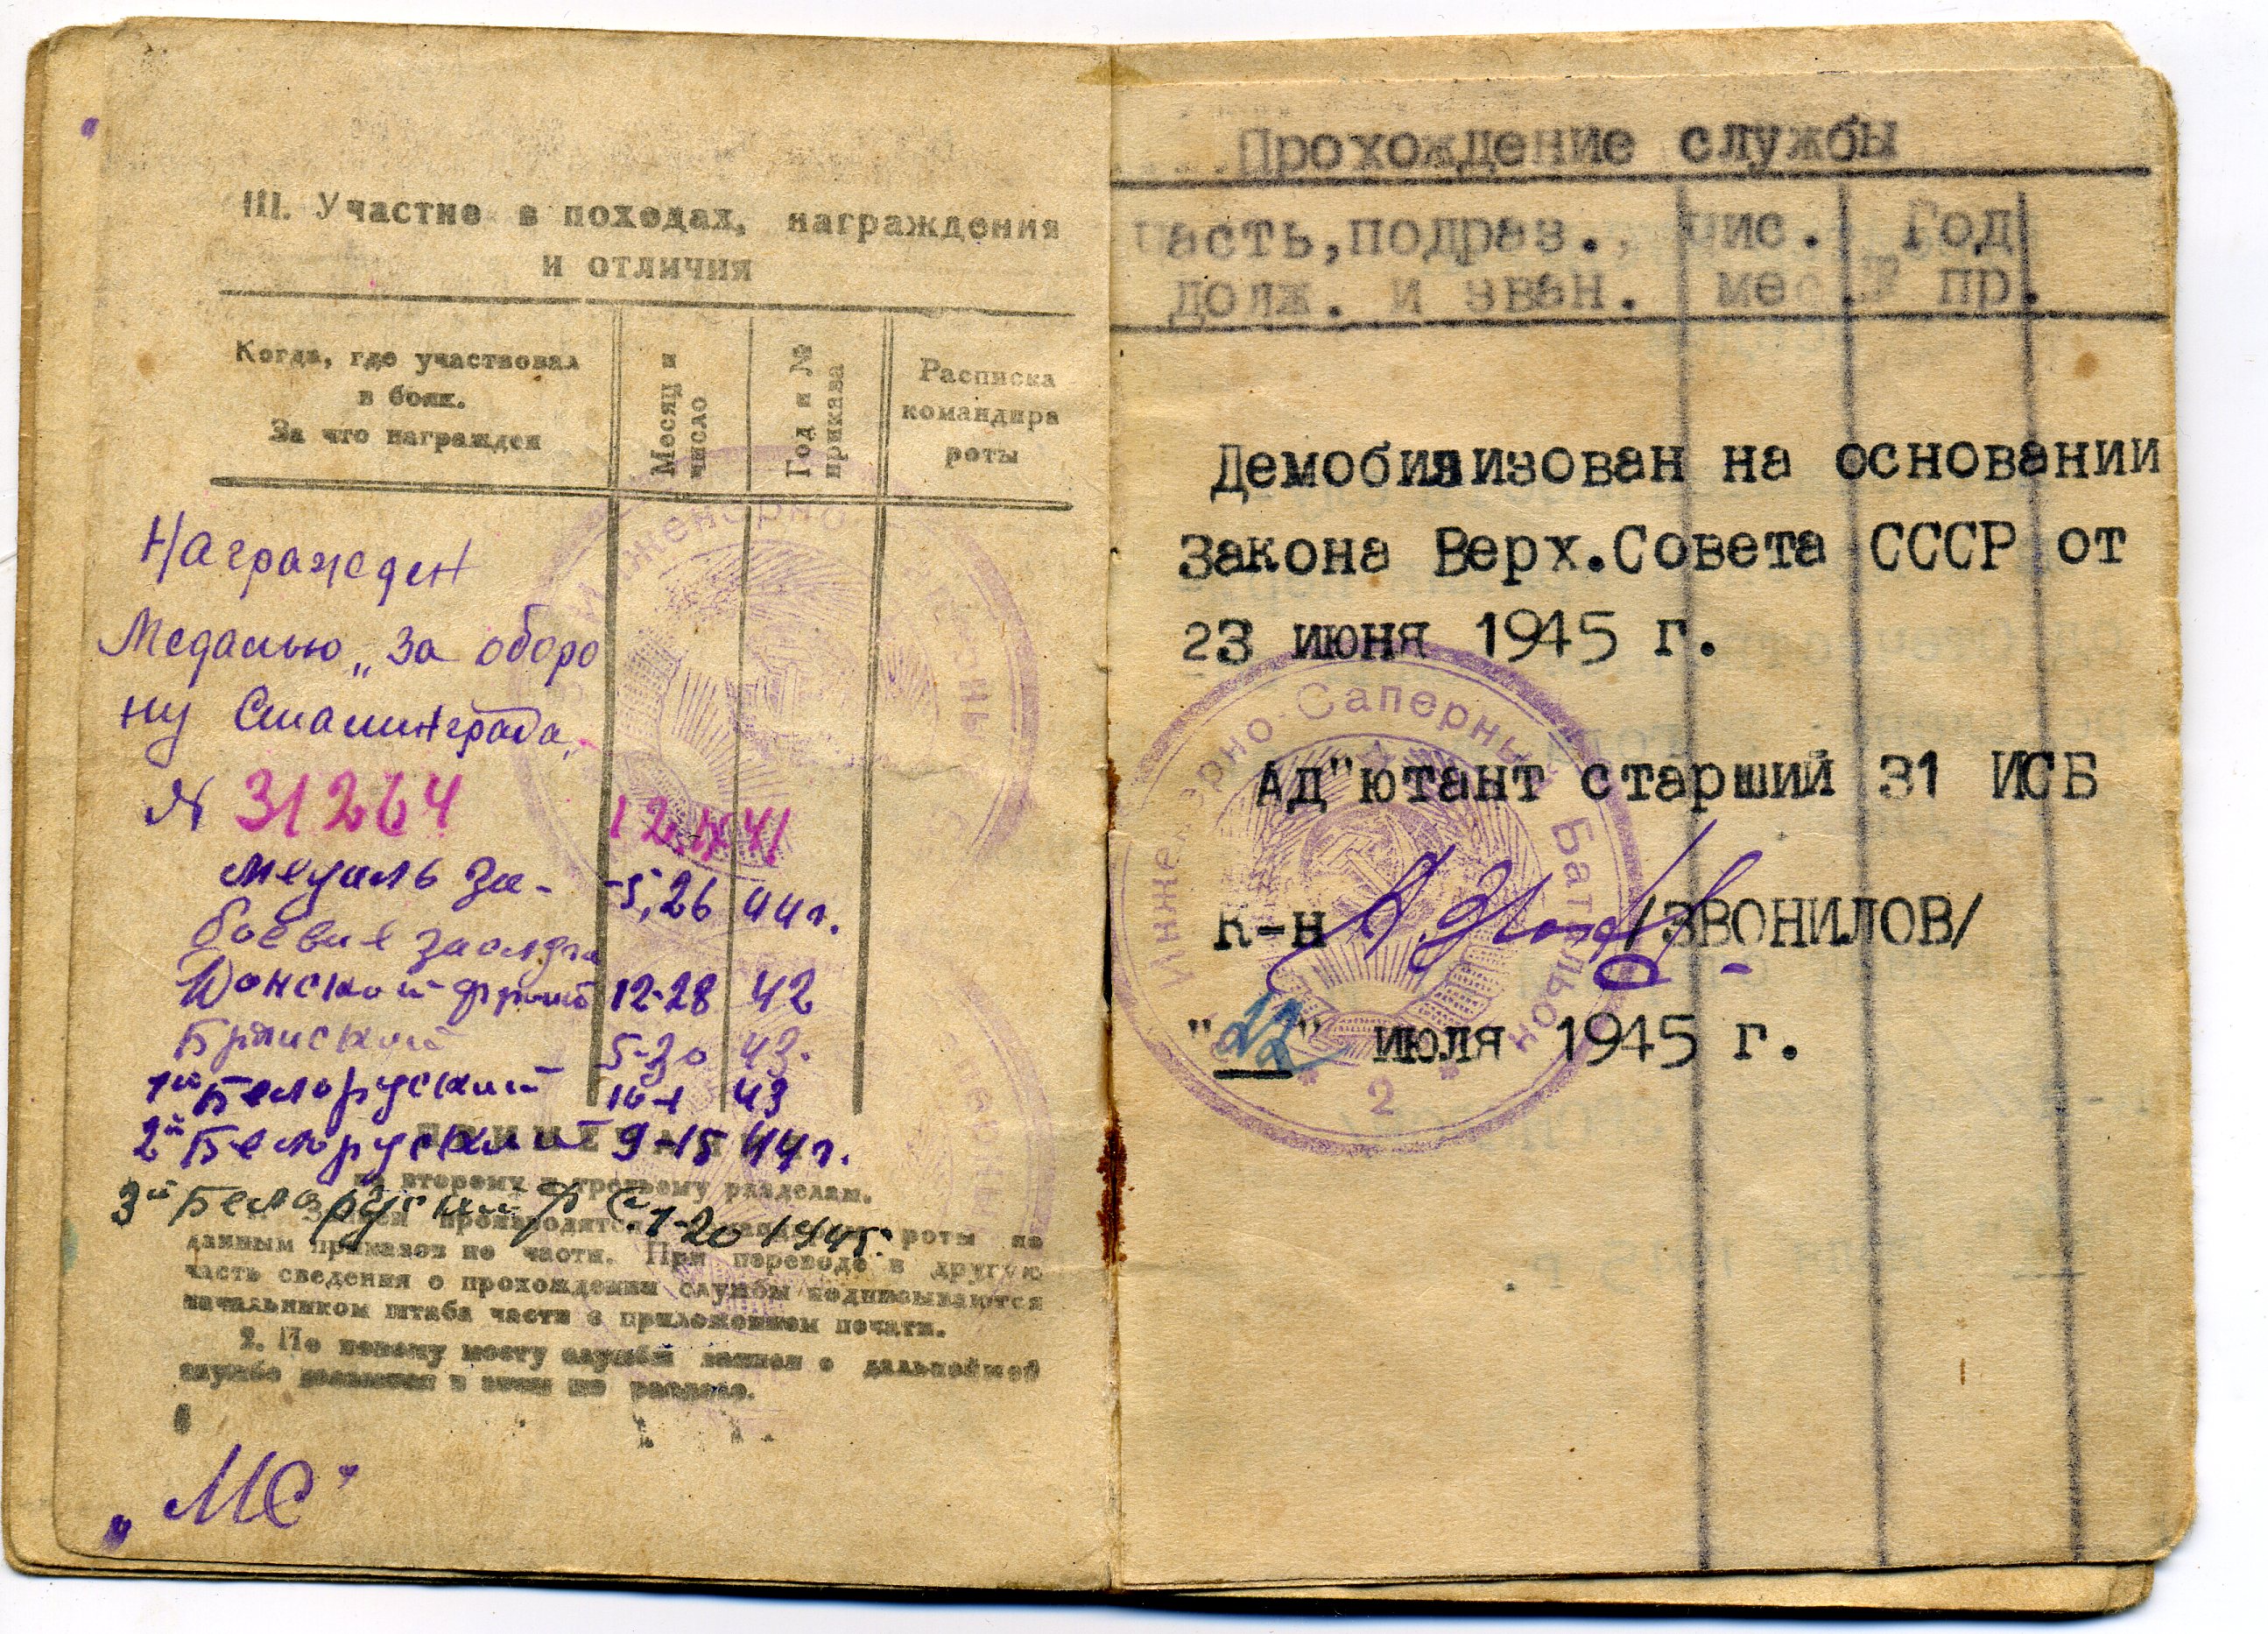 III. Участие в походах, награждения
и отличия
Когда, где участвовал
в боях.
За что награжден
Месяц и
число
Год и №
приказа
Расписка
командира
роты
Награжден
Медалью „За оборо
ну Сталинграда„
N 31264 12 41
медаль за- -5,26 44г.
боевые заслуги
Донской фронт 12-28 42
Брянский 5-30 43.
1й Белоруский 10-1 43
2й Белоруский 9-15 44г.
ко второму и третьему разделам.
3й Белоруский ф С 1-20 1945г.
1. Записи производятся роты по
данным приказов по части. При переводе в другую
часть сведения о прохождении службы подписываются
начальником штаба части с приложением печати.
2. По новому месту службы записи о дальнейшей
службе делаются в этом же разделе.
„МС"
Прохождение службы
часть,подраз.,
долж. и зван.
чис.
мес.
Год
пр.
Демобилизован на основании
Закона Верх.Совета СССР от
23 июня 1945 г.
Ад"ютант старший 31 ИСБ
К-н /ЗВОНИЛОВ/
"22" июля 1945 г.
Инженерно-Саперный Батальон
* 2 *